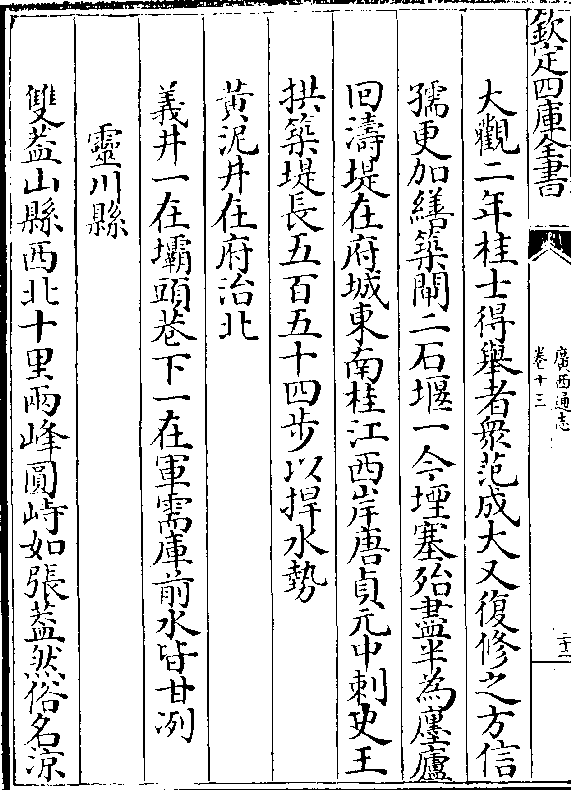 欽定四庫全書
廣西通志
卷十三
二十二
大觀二年桂士得舉者衆范成大又復修之方信
孺更加繕築閘二石堰一今堙塞殆盡半為廛廬
回濤堤在府城東南桂江西岸唐貞元中刺史王
拱築堤長五百五十四步以捍水勢
黃泥井在府治北
義井一在壩頭巷下一在軍需庫前水皆甘冽
靈川縣
雙葢山縣西北十里兩峰圓峙如張葢然俗名涼